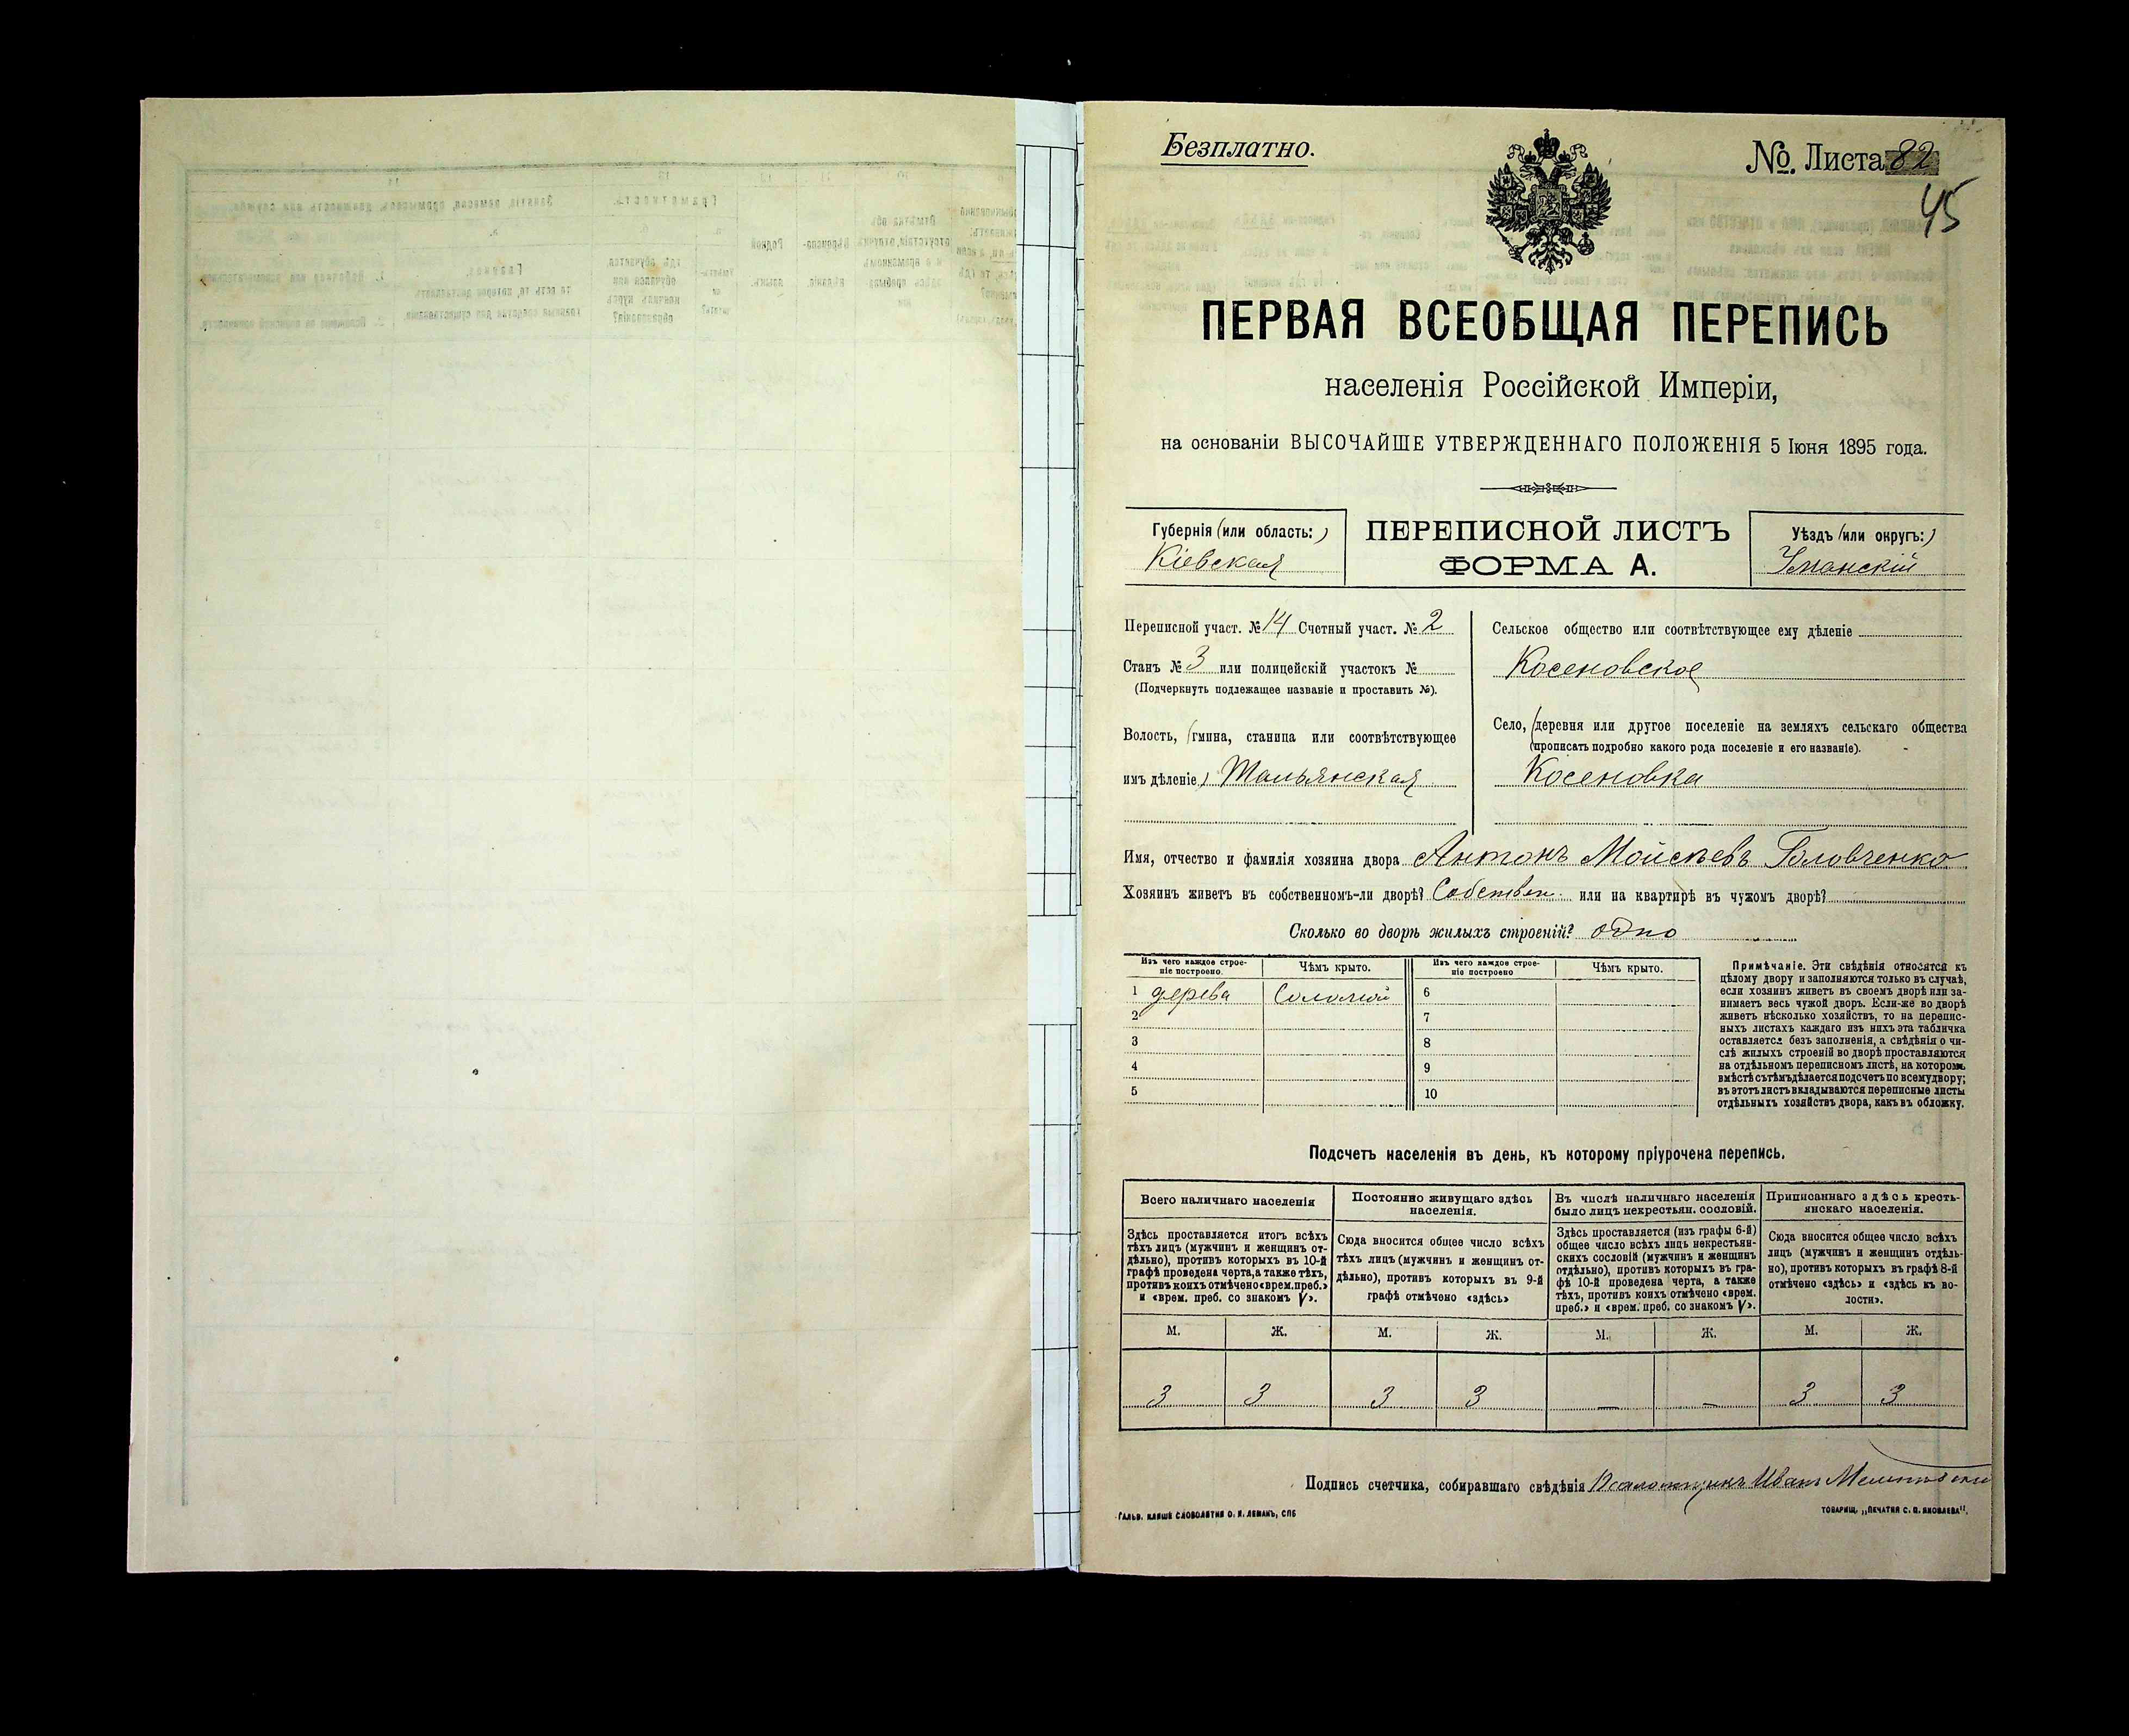 Безплатно.
№ Листа 82
45
ПЕРВАЯ ВСЕОБЩАЯ ПЕРЕПИСЬ
населенія Россійской Имперіи,
на основаніи ВЫСОЧАЙШЕ УТВЕРЖДЕННАГО ПОЛОЖЕНІЯ 5 Іюня 1895 года.
Губернія (или область:)
Кіевская
ПЕРЕПИСНОЙ ЛИСТЪ
ФОРМА А.
Уѣздъ (или округъ:)
Уманскій
Переписной участ. № 14 Счетный участ. № 2
Станъ № 3 или полицейскій участокъ №
(Подчеркнуть подлежащее названіе и проставить №).
Волость, (гмина, станица или соотвѣтствующее
имъ дѣленіе) Тальянская
Сельское общество или соотвѣтствующее ему дѣленіе
Косеновское
Село, (деревня или другое поселеніе на земляхъ сельскаго общества
(прописать подробно какого рода поселеніе и его названіе).
Косеновка
Имя, отчество и фамилія хозяина двора Антонъ Мойсѣевъ Головченко
Хозяинъ живетъ въ собственномъ-ли дворѣ? Собствен. или на квартирѣ въ чужомъ дворѣ?
Сколько во дворѣ жилыхъ строеній? одно
Изъ чего каждое строе-
ніе построено.
Чѣмъ крыто.
Изъ чего каждое строе-
ніе построено
Чѣмъ крыто.
1 дерева Соломой 6
2 7
3 8
4 9
5 10
Примѣчаніе. Эти свѣдѣнія относятся къ
цѣлому двору и заполняются только въ случаѣ,
если хозяинъ живетъ въ своемъ дворѣ или за-
нимаетъ весь чужой дворъ. Если-же во дворѣ
живетъ нѣсколько хозяйствъ, то на перепис-
ныхъ листахъ каждаго изъ нихъ эта табличка
оставляется безъ заполненія, а свѣдѣнія о чи-
слѣ жилыхъ строеній во дворѣ проставляются
на отдѣльномъ переписномъ листѣ, на которомъ
вмѣстѣ съ тѣмъ дѣлается подсчетъ по всему двору;
въ этотъ листъ вкладываются переписные листы
отдѣльныхъ хозяйствъ двора, какъ въ обложку.
Подсчетъ населенія въ день, къ которому пріурочена перепись.
Всего наличнаго населенія
Постоянно живущаго здѣсь
населенія.
Въ числѣ наличнаго населенія
было лицъ некрестьян. сословій.
Приписаннаго здѣсь кресть-
янскаго населенія.
Здѣсь проставляется итогъ всѣхъ
тѣхъ лицъ (мужчинъ и женщинъ от-
дѣльно), противъ которыхъ въ 10-й
графѣ проведена черта, а также тѣхъ,
противъ коихъ отмѣчено «врем. преб.»
и «врем. преб. со знакомъ V».
Сюда вносится общее число всѣхъ
тѣхъ лицъ (мужчинъ и женщинъ от-
дѣльно), противъ которыхъ въ 9-й
графѣ отмѣчено «здѣсь»
Здѣсь проставляется (изъ графы 6-й)
общее число всѣхъ лицъ некрестьян-
скихъ сословій (мужчинъ и женщинъ
отдѣльно), противъ которыхъ въ гра-
фѣ 10-й проведена черта, а также
тѣхъ, противъ коихъ отмѣчено «врем.
преб.» и «врем. преб. со знакомъ V».
Сюда вносится общее число всѣхъ
лицъ (мужчинъ и женщинъ отдѣль-
но), противъ которыхъ въ графѣ 8-й
отмѣчено «здѣсь» и «здѣсь къ во-
лости».
М. Ж. М. Ж. М. Ж. М. Ж.
3 3 3 3 — — 3 3
Подпись счетчика, собиравшаго свѣдѣнія Псаломщикъ Иванъ
ГАЛЬВ. КЛИШЕ СЛОВОЛИТНИ О. И. ЛЕМАНЪ, СПБ
ТОВАРИЩ. „ПЕЧАТНЯ С. П. ЯКОВЛЕВА".